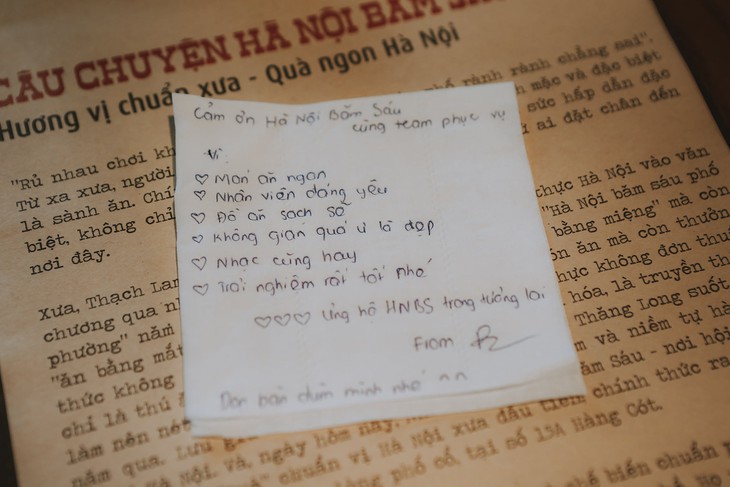 CÂU CHUYỆN HÀ NỘI BĂM SÁ
Hương vị chuẩn xưa - Quà ngon Hà Nội
phố rành rành chẳng sai".
mặc và đặc biệt
sức hấp dẫn đặc
ai đặt chân đến
"Rủ nhau chơi kh
Từ xa xưa, người
là sành ăn. Chí
biệt, không chỉ
nơi đây.
thực Hà Nội vào văn
"Hà Nội băm sáu phố
bằng miệng" mà còn
ăn mà còn thườn
không đơn thuầ
hóa, là truyền th
Thăng Long suốt
m và niềm tự hà
ăm Sáu - nơi hội
chính thức ra
Xưa, Thạch Lam
chương qua nh
phường" năm
"ăn bằng mắt
thức không
chỉ là thú
làm nên nét
năm qua. Lưu
Hà Nội và, ngày hôm nay, Hà Nội xưa đầu tiên
chuẩn vị Hà Nội
phố cổ tại số 15A Hàng Cót.
chế biến chuẩn
Cảm ơn Hà Nội Băm Sáu
cùng team phục vụ
Vì:
♡ Món ăn ngon
♡ Nhân viên đáng yêu
♡ Đồ ăn sạch sẽ
♡ Không gian quá ư là đẹp
♡ Nhạc cũng hay
♡ Trải nghiệm rất tốt nhé
♡♡♡ ủng hộ HNBS trong tương lai
From
Dọn bàn dùm mình nhé ^^